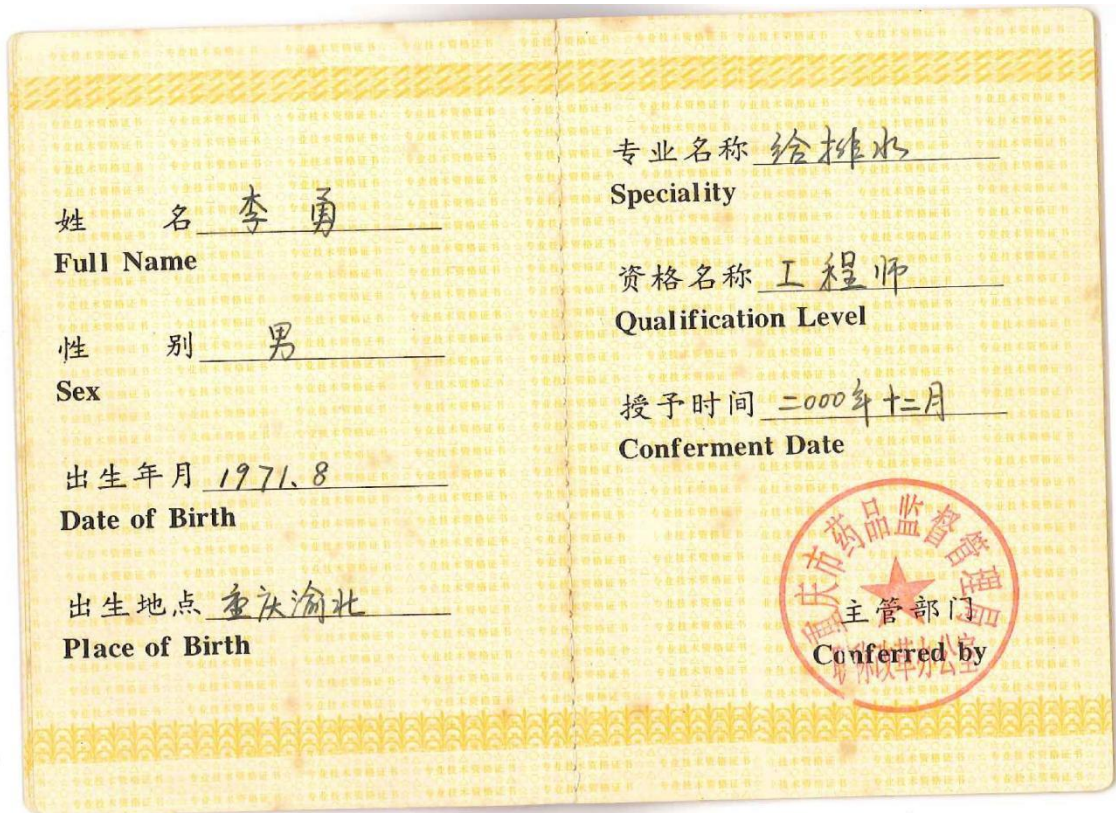 姓 名 李勇
Full Name
性 别 男
Sex
出生年月 1971、8
Date of Birth
出生地点 重庆渝北
Place of Birth
专业名称 给排水
Speciality
资格名称 工程师
Qualification Level
授予时间 二000年十二月
Conferment Date
重庆市药品监督管理局
主管部门
Conferred by
职称改革办公室